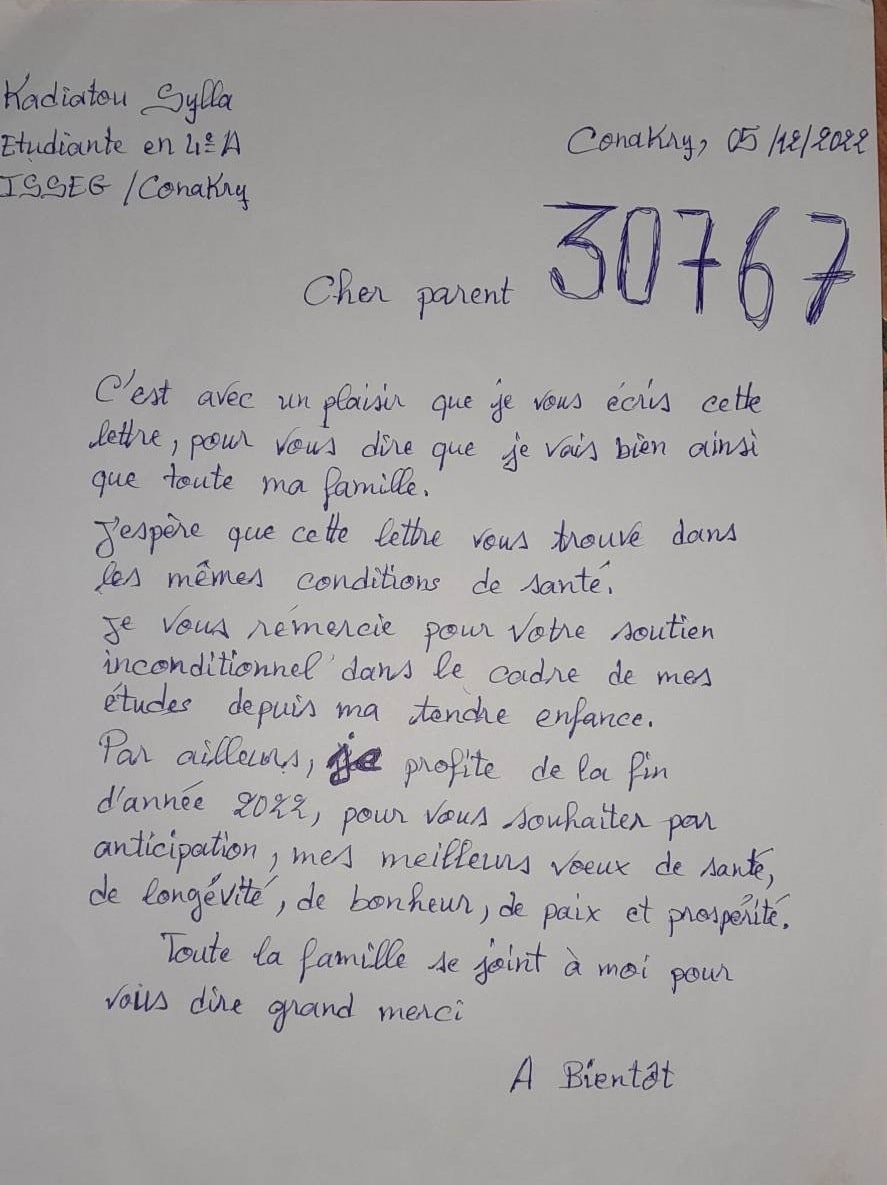 Kadiatou Sylla
Etudiante en 4e A
ISSEG / Conakry
Conakry, 05/12/2022
30767
Cher parent
C'est avec un plaisir que je vous écris cette
lettre, pour vous dire que je vais bien ainsi
que toute ma famille.
J'espère que cette lettre vous trouve dans
les mêmes conditions de santé.
Je vous remercie pour votre soutien
inconditionnel dans le cadre de mes
études depuis ma tendre enfance.
Par ailleurs, je profite de la fin
d'année 2022, pour vous souhaiter par
anticipation, mes meilleurs voeux de santé,
de longévité, de bonheur, de paix et prospérité.
Toute la famille se joint à moi pour
vous dire grand merci
A Bientôt